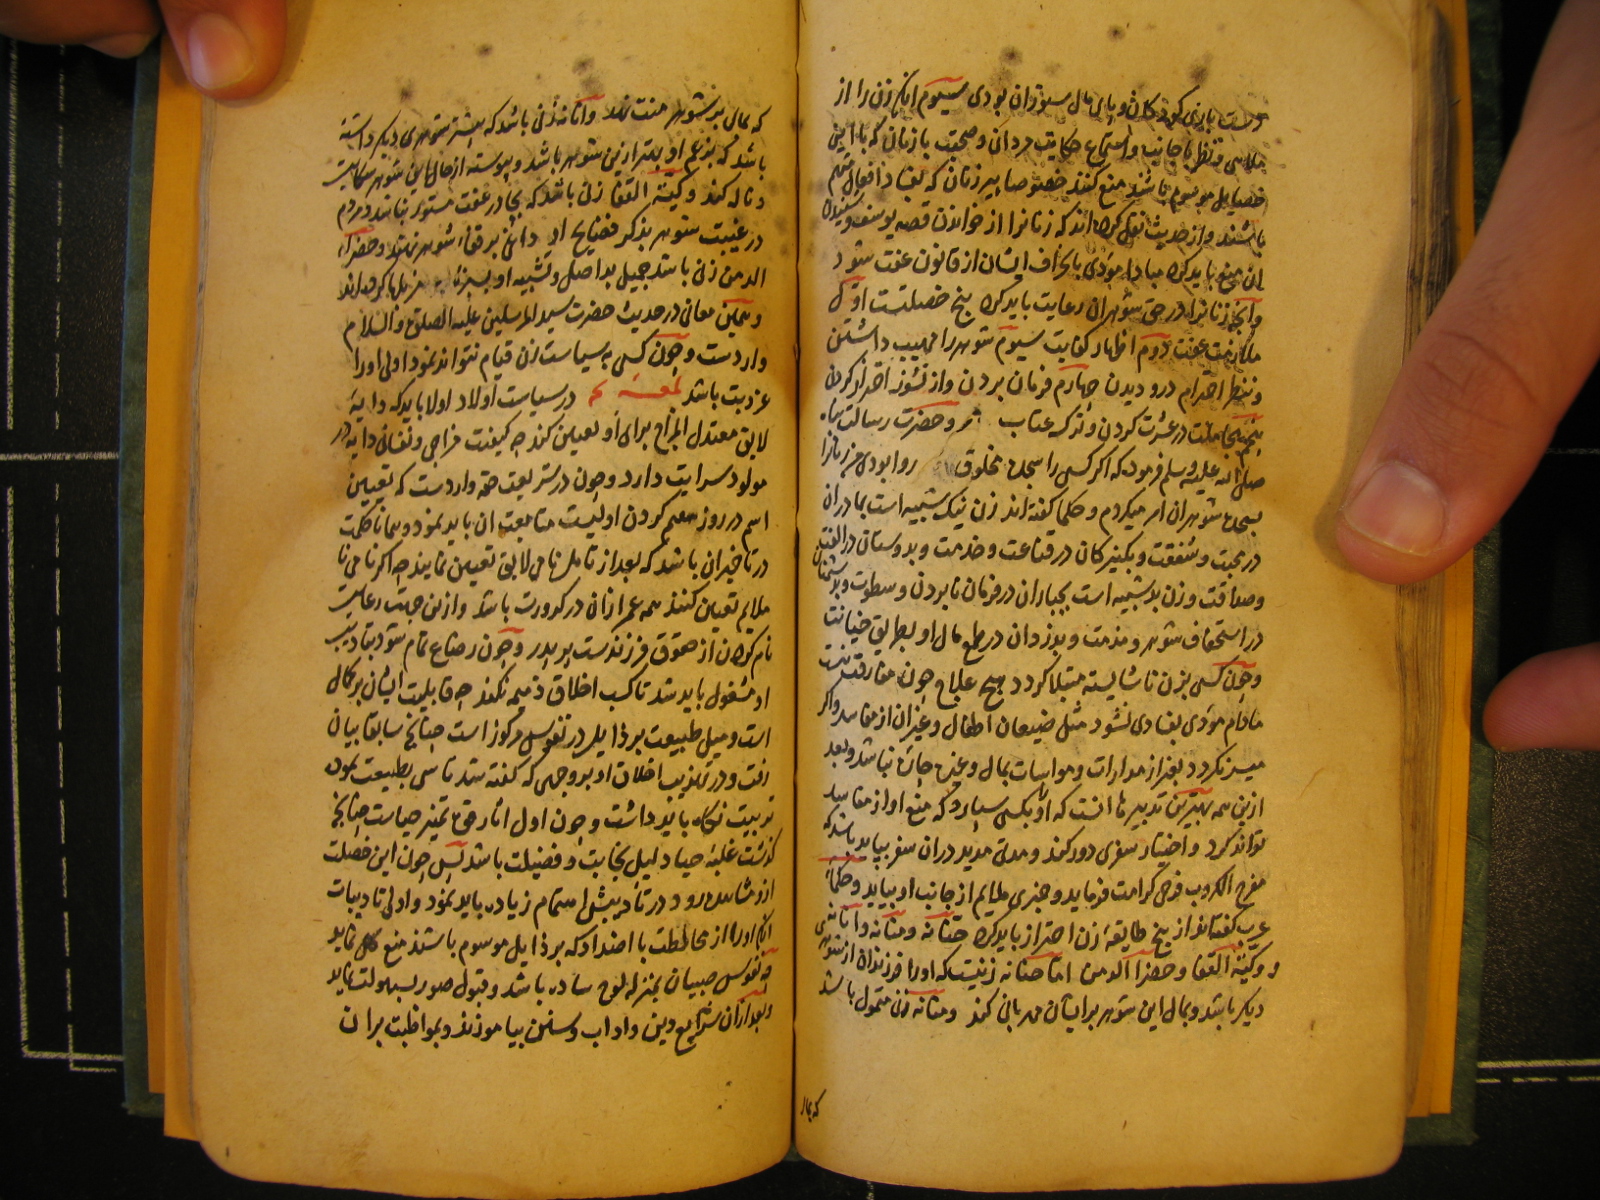 دست بازی کودکان و پای مال ستوران بودی سیوم آنکه زن را از
ملاهی و نظر باجانب و استماع حکایت مردان و صحبت با زنان که باین
خصایل موسوم باشند منع کنند خصوصا پیر زنان که بفساد افعال متهم
باشند و از حدیث نقل کرده اند که زنانرا از خواندن قصه یوسف و شنیدن
آن منع باید کرد مبادا مودی بانحراف ایشان از قانون عفت شود
و آنچه زنانرا در حق شوهران رعایت باید کرد پنج خصلتست اول
ملازمت عفت دوم اظهار کفایت سیوم شوهر را مهیب داشتن
و بنظر احترام درو دیدن چهارم فرمان بردن و از نشوز احتراز کردن
پنجم مجاملت در عشرت کردن و ترک عتاب و حضرت رسالت پناه
صلی الله علیه و سلم فرمود که اگر کسی را سجده مخلوق روا بودی من زنانرا
بسجده شوهران امر میکردم و حکما گفته اند زن نیک شبیه است بمادران
در محبت و شفقت و بکنیزکان در قناعت و خدمت و بدوستان در الفت
و صداقت و زن بد شبیه است بجباران در فرمان نابردن و سطوت و بدشمنان
در استخفاف شوهر و مذمت و بدزدان در طمع مال او بطریق خیانت
و چون کسی بزن ناشایسته مبتلا گردد هیچ علاج چون مفارقت نیست
مادام مؤدی بفسادی نشود مثل ضیعان اطفال و غیر آن از مفاسد و اگر
میسر نگردد بغیر از مدارات و مواسات بمال و غیره چاره نباشد و بعد
ازین همه بهترین تدبیرها آنست که او بکسی سپارد که منع او از مفاسد
تواند کرد و اختیار سفری دور کند و مدتی مدید در آن سفر بپاید باشد که
مفرج الکروب فرجی کرامت فرماید و خبری ملایم از جانب او بیاید و حکمای
عرب گفته اند از پنج طایفه زن احتراز باید کرد حنانه و منانه و انانه
و کیة القفا و خضراء الدمن اما حنانه زنیست که او را فرزندان از شوهری
دیگر باشد و بمال این شوهر بر ایشان مهربانی کند و منانه زن متمول باشد
که بمال
که بمال بر شوهر منت نهد و انانه زنی باشد که پیشتر شوهری دیگر داشته
باشد که بزعم او بهتر ازین شوهر باشد و پیوسته از حال این شوهر شکایت
و ناله کند و کیة القفا زنی باشد که بچادر عفت مستور نباشد و مردم
در غیبت شوهر بذکر فضایح او داغی بر قفاء شوهر نهند و خضراء
الدمن زنی باشد جمیل بد اصل و تشبیه او بسبزه مزبلها کرده اند
و همین معانی در حدیث حضرت سید المرسلین علیه الصلوة والسلام
واردست و چون کسی به سیاست زن قیام نتواند نمود اولی او را
عزوبت باشد لمعه در سیاست اولاد اولا باید که دایهٔ
لایق معتدل المزاج برای او تعیین کند چه کیفیت مزاجی و نفسانی دایه در
مولود سرایت دارد و چون در شریعت حقه واردست که تعیین
اسم در روز هفتم کردن اولیست متابعت آن باید نمود و همانا حکمت
در تاخیر آن باشد که بعد از تامل نامی لایق تعیین نمایند چه اگر نامی نا
ملایم تعیین کنند همه عمر از آن در کدورت باشد و ازین جهت رعایت
نام کردن از حقوق فرزندست بر پدر و چون رضاع تمام شود بتادیب
او مشغول باید شد تا کسب اخلاق ذمیمه نکند چه قابلیت ایشان بر کمال
است و میل طبیعت برذایل در نفوس مرکوز است چنانچه سابقا بیان
رفت و در تهذیب اخلاق او بروجهی که گفته شد تاسی بطبیعت نموده
تربیت نگاه باید داشت و چون اول آثار قوه تمیز حیاست چنانچه
گذشت غلبهٔ حیا دلیل نجابت و فضیلت باشد پس چون این خصلت
ازو مشاهده رود در تادیبش اهتمام زیاده باید نمود و اول تادیبات
آنکه او را از مخالطت با اضداد که برذایل موسوم باشند منع کلی نماید
چه نفوس صبیان بمنزله لوح ساده باشد و قبول صور بسهولت نماید
و بعد از آن شرایع دین و آداب و سنن بیاموزند و بمواظبت بر آن